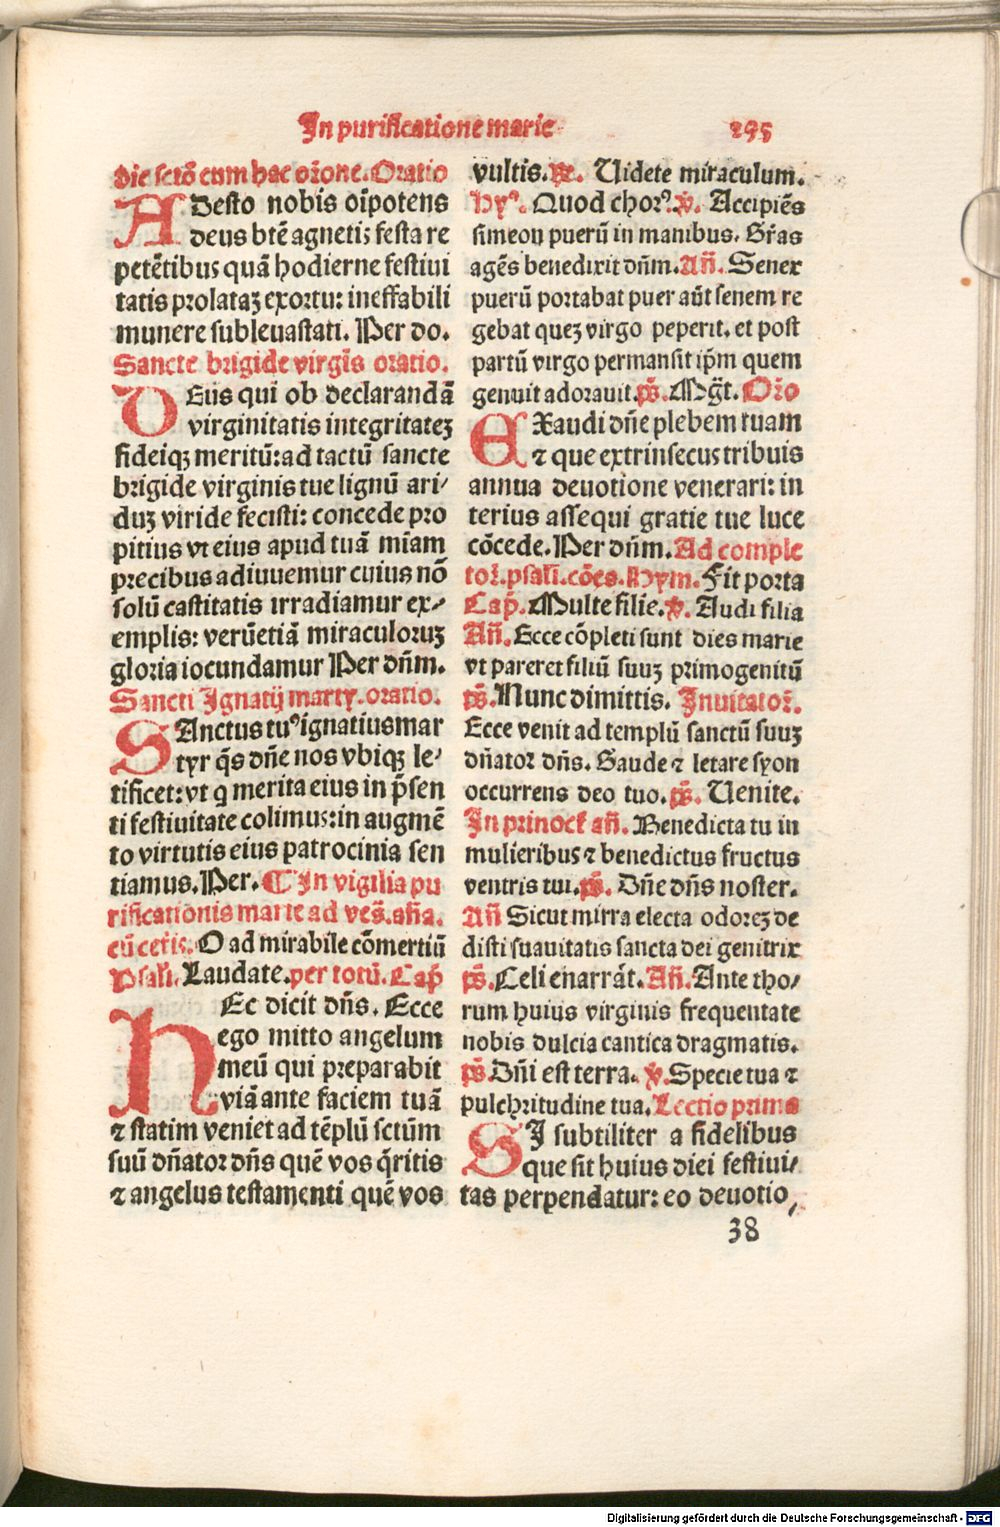 In purificatione marie 295
die sctõ cum hac oꝛ̃one. Oratio
ADesto nobis oĩpotens
deus btẽ agnetis festa re
petẽtibus quã hodierne festiui
tatis prolataꝫ exortu: ineffabili
munere subleuasti. Per do.
Sancte brigide virgĩs oratio.
DEus qui ob declarandã
virginitatis integritateꝫ
fideiqꝫ meritũ: ad tactũ sancte
brigide virginis tue lignũ ari/
duꝫ viride fecisti: concede pro
pitius vt eius apud tuã miãm
precibus adiuuemur cuius nõ
solũ castitatis irradiamur ex/
emplis: verũetiã miraculoruꝫ
gloria iocundamur Per dñm.
Sancti Ignatij marty. oratio.
SAnctus tuꝰ ignatius mar
tyr q̃s dñe nos vbiqꝫ le/
tificet: vt q merita eius in p̃sen
ti festiuitate colimus: in augmẽ
to virtutis eius patrocinia sen
tiamus. Per. ¶ In vigilia pu
rificationis marie ad ves̃. añа.
cũ ceťis. O admirabile cõmertiũ
Psalľ. Laudate. per totũ. Cap̃
HEc dicit dñs. Ecce
ego mitto angelum
meũ qui preparabit
viã ante faciem tuã
⁊ statim veniet ad tẽplũ sctũm
suũ dñator dñs quẽ vos q̃ritis
⁊ angelus testamenti quẽ vos
vultis. ꝶ. Uidete miraculum.
hyꝰ. Quod chorꝰ. ꝟ. Accipiẽs
simeon puerũ in manibus. Gr̃as
agẽs benedixit dñm. Añ. Senex
puerũ portabat puer aũt senem re
gebat queꝫ virgo peperit. et post
partũ virgo permansit ip̃m quem
genuit adorauit. pš. Mg̃t. Oꝛ̃o
EXaudi dñe plebem tuam
⁊ que extrinsecus tribuis
annua deuotione venerari: in
terius assequi gratie tue luce
cõcede. Per dñm. Ad comple
toꝛ̃. psalľ. cões. Hym. Fit porta
Cap̃. Multe filie. ꝟ. Audi filia
Añ. Ecce cõpleti sunt dies marie
vt pareret filiũ suuꝫ primogenitũ
pš. Nunc dimittis. Inuitatoꝛ̃.
Ecce venit ad templũ sanctũ suuꝫ
dñator dñs. Gaude ⁊ letare syon
occurrens deo tuo. pš. Uenite.
In pri nocť añ. Benedicta tu in
mulieribus ⁊ benedictus fructus
ventris tui. pš. Dñe dñs noster.
Añ Sicut mirra electa odoreꝫ de
disti suauitatis sancta dei genitrix
pš. Celi enarrãt. Añ. Ante tho/
rum huius virginis frequentate
nobis dulcia cantica dragmatis.
pš Dñi est terra. ꝟ. Specie tua ⁊
pulchritudine tua. Lectio prima
SI subtiliter a fidelibus
que sit huius diei festiui/
tas perpendatur: eo deuotio/
38
Digitalisierung gefördert durch die Deutsche Forschungsgemeinschaft - DFG